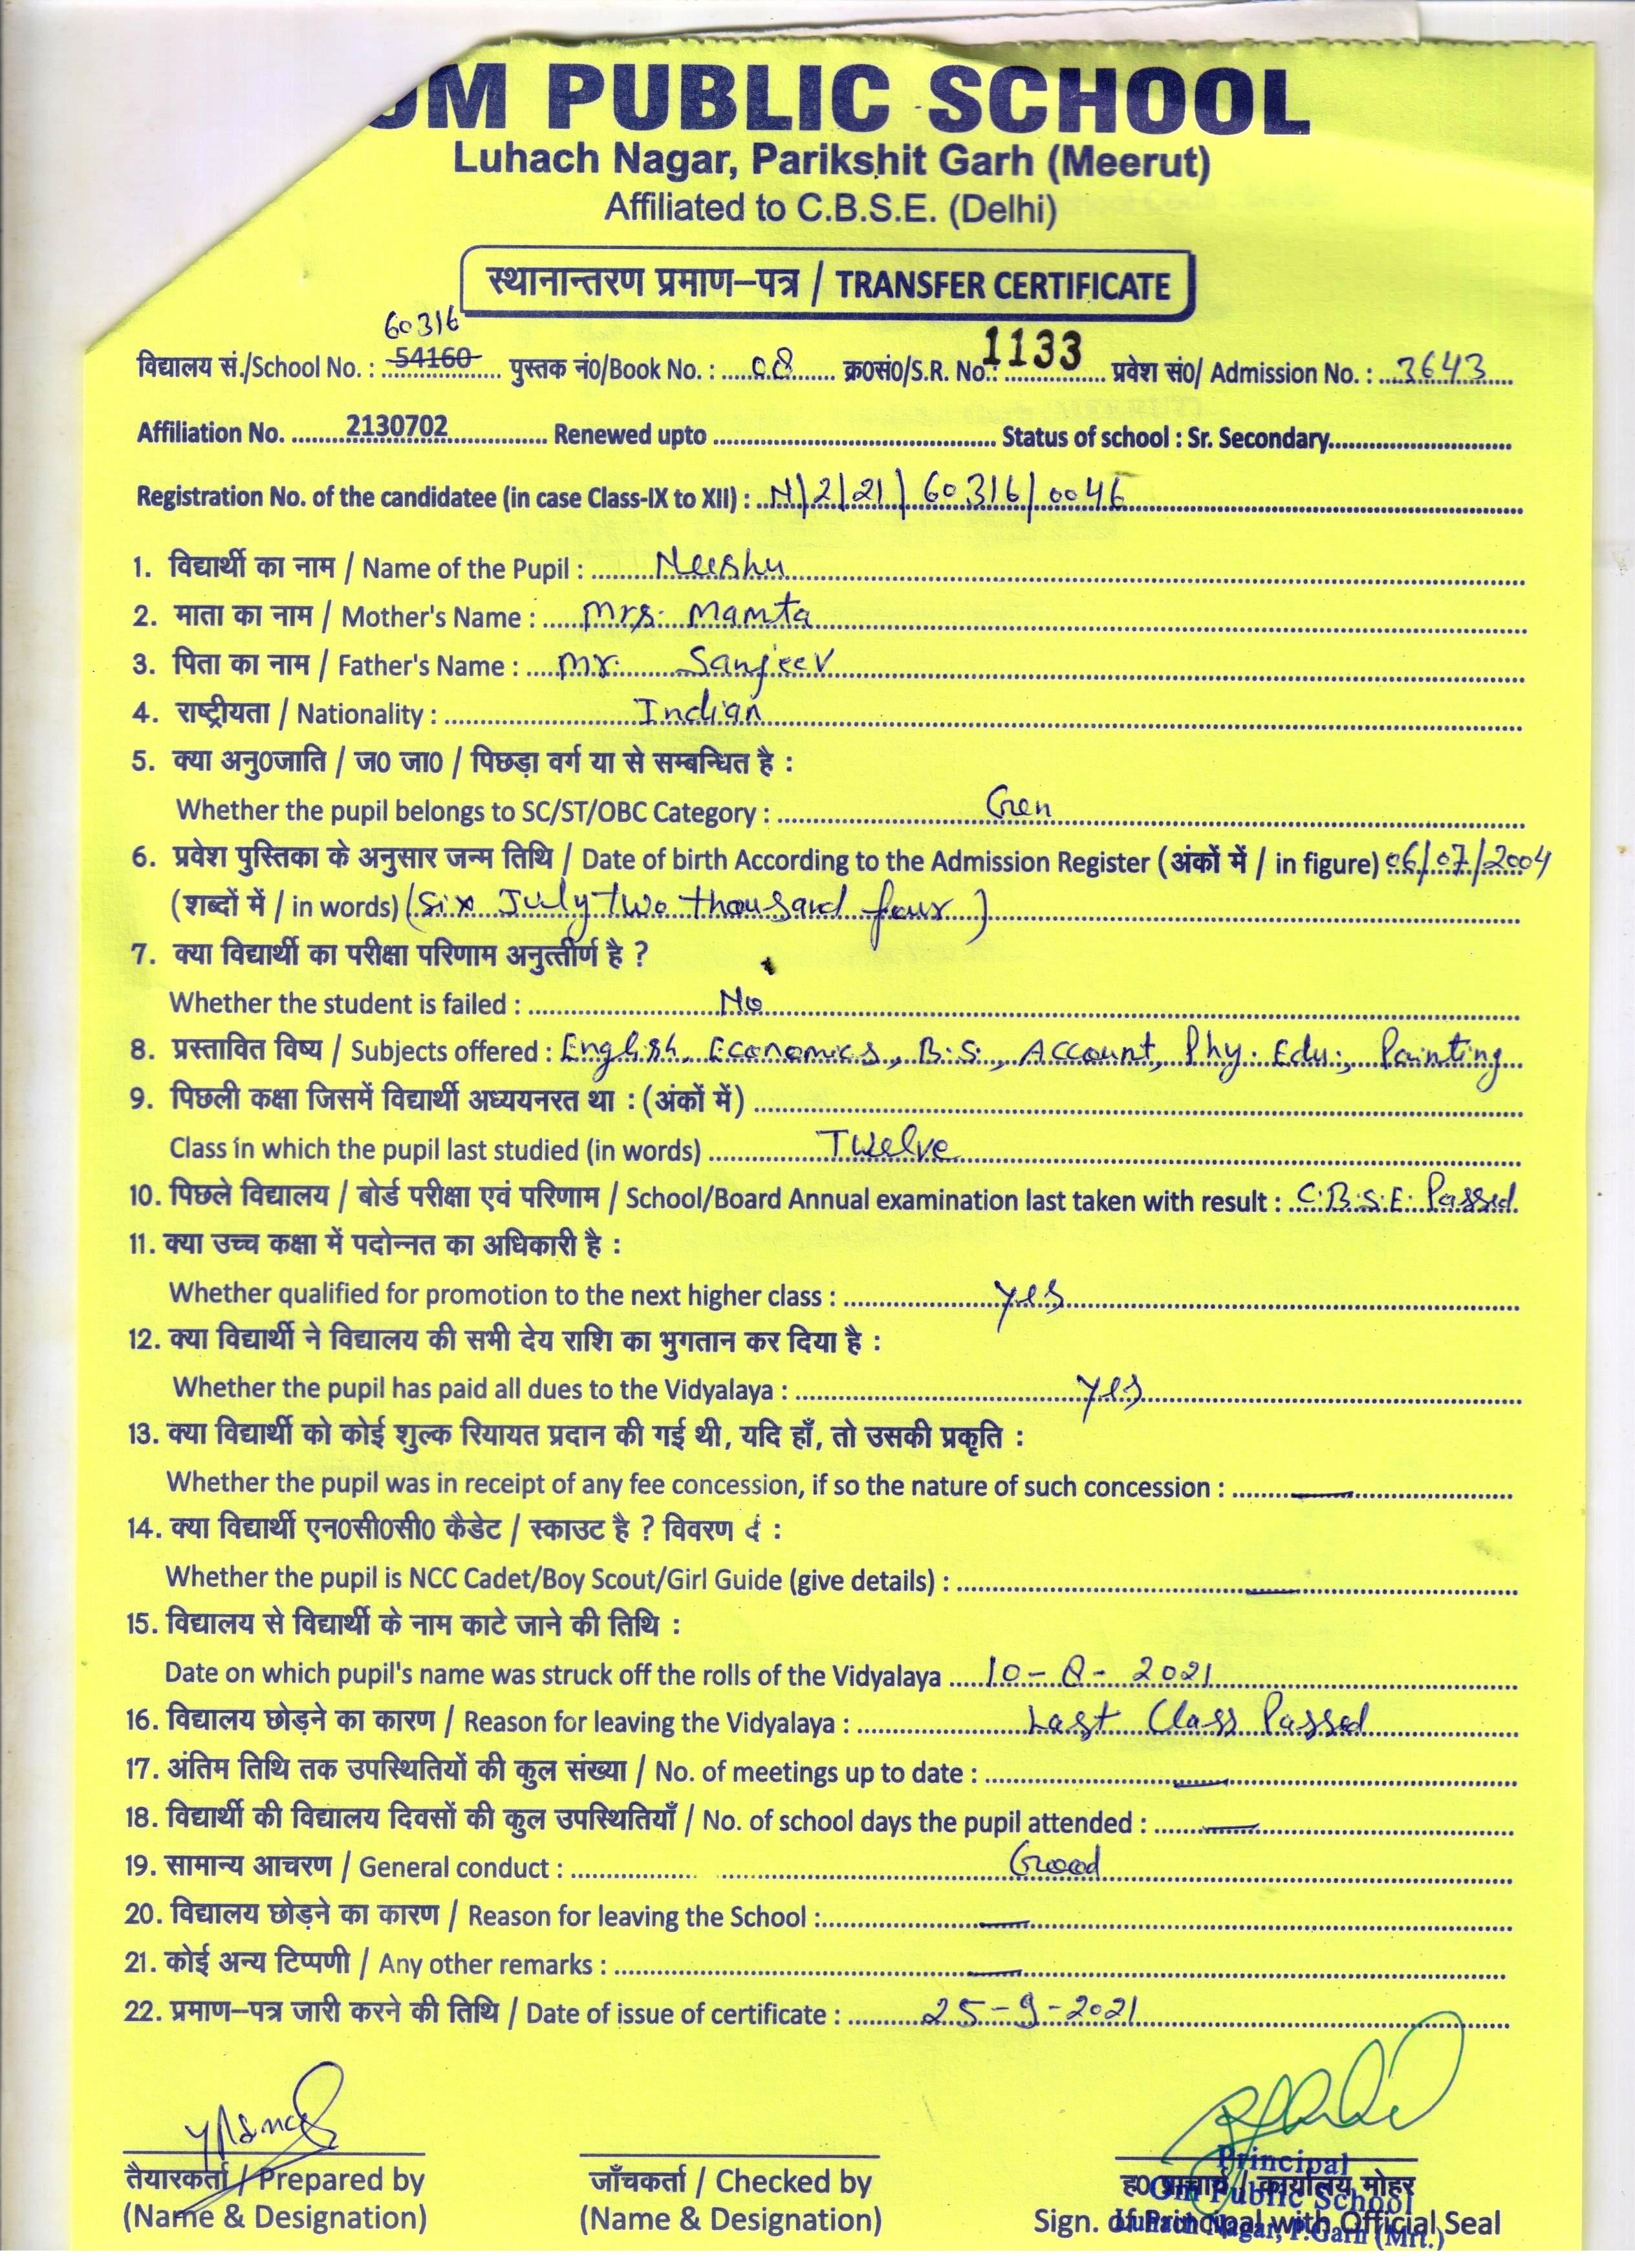 OM PUBLIC SCHOOL
Luhach Nagar, Parikshit Garh (Meerut)
Affiliated to C.B.S.E. (Delhi)
स्थानान्तरण प्रमाण–पत्र / TRANSFER CERTIFICATE
60316
विद्यालय सं./School No. : 54160 पुस्तक नं0/Book No. : 08 क्र0सं0/S.R. No.: 1133 प्रवेश सं0/ Admission No. : 3643
Affiliation No. 2130702 Renewed upto Status of school : Sr. Secondary
Registration No. of the candidatee (in case Class-IX to XII) : N/2/21/60316/0046
1. विद्यार्थी का नाम / Name of the Pupil : Neeshu
2. माता का नाम / Mother's Name : Mrs. Mamta
3. पिता का नाम / Father's Name : Mr. Sanjeev
4. राष्ट्रीयता / Nationality : Indian
5. क्या अनु0जाति / ज0 जा0 / पिछड़ा वर्ग या से सम्बन्धित है :
Whether the pupil belongs to SC/ST/OBC Category : Gen
6. प्रवेश पुस्तिका के अनुसार जन्म तिथि / Date of birth According to the Admission Register (अंकों में / in figure) 06/07/2004
(शब्दों में / in words) (Six July two thousand four)
7. क्या विद्यार्थी का परीक्षा परिणाम अनुत्तीर्ण है ?
Whether the student is failed : No
8. प्रस्तावित विष्य / Subjects offered : English, Economics, B.S., Account, Phy. Edu., Painting
9. पिछली कक्षा जिसमें विद्यार्थी अध्ययनरत था : (अंकों में)
Class in which the pupil last studied (in words) Twelve
10. पिछले विद्यालय / बोर्ड परीक्षा एवं परिणाम / School/Board Annual examination last taken with result : C.B.S.E. Passed
11. क्या उच्च कक्षा में पदोन्नत का अधिकारी है :
Whether qualified for promotion to the next higher class : yes
12. क्या विद्यार्थी ने विद्यालय की सभी देय राशि का भुगतान कर दिया है :
Whether the pupil has paid all dues to the Vidyalaya : yes
13. क्या विद्यार्थी को कोई शुल्क रियायत प्रदान की गई थी, यदि हाँ, तो उसकी प्रकृति :
Whether the pupil was in receipt of any fee concession, if so the nature of such concession : —
14. क्या विद्यार्थी एन0सी0सी0 कैडेट / स्काउट है ? विवरण दें :
Whether the pupil is NCC Cadet/Boy Scout/Girl Guide (give details) : —
15. विद्यालय से विद्यार्थी के नाम काटे जाने की तिथि :
Date on which pupil's name was struck off the rolls of the Vidyalaya 10-8-2021
16. विद्यालय छोड़ने का कारण / Reason for leaving the Vidyalaya : Last Class Passed
17. अंतिम तिथि तक उपस्थितियों की कुल संख्या / No. of meetings up to date : —
18. विद्यार्थी की विद्यालय दिवसों की कुल उपस्थितियाँ / No. of school days the pupil attended : —
19. सामान्य आचरण / General conduct : Good
20. विद्यालय छोड़ने का कारण / Reason for leaving the School : —
21. कोई अन्य टिप्पणी / Any other remarks : —
22. प्रमाण–पत्र जारी करने की तिथि / Date of issue of certificate : 25-9-2021
तैयारकर्ता / Prepared by जाँचकर्ता / Checked by ह0 प्राचार्य / कार्यालय मोहर
(Name & Designation) (Name & Designation) Sign. of Principal with Official Seal
Principal
Om Public School
Luhach Nagar, P.Garh (Mrt.)